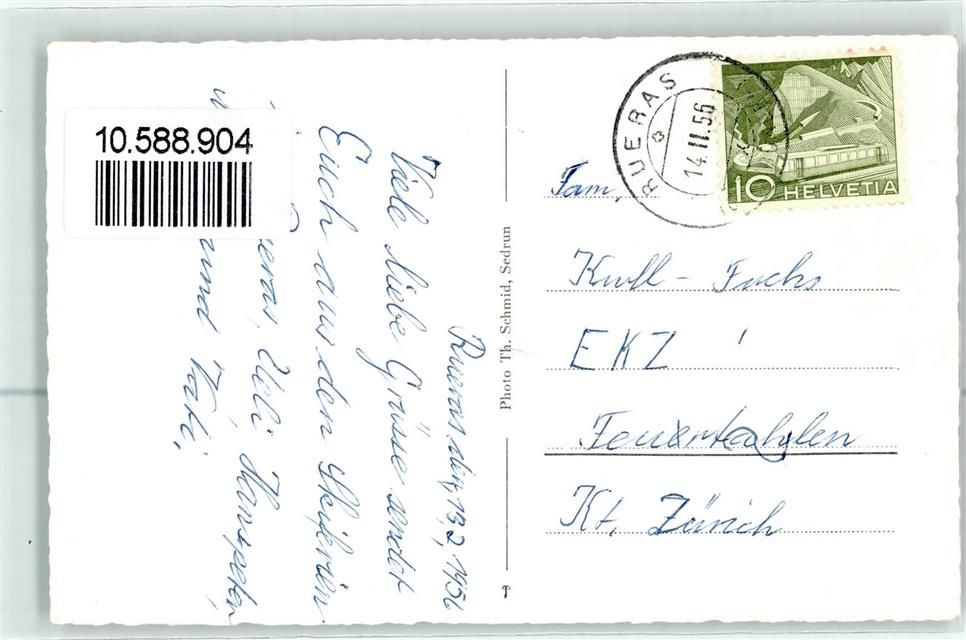 10.588.904
Rueras, den, 13, 2, 1956
Viele liebe Grüsse sendet
Euch aus den Skiferien
Ueli Hanspeter,
und Vati,
Photo Th. Schmid, Sedrun
RUERAS
14.II.56
10 HELVETIA
Fam,
Kull - Fuchs
EKZ
Feuerthahlen
Kt, Zürich